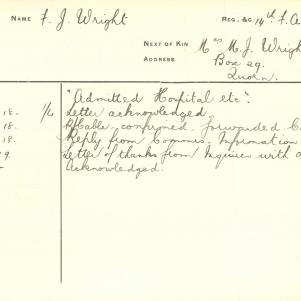 NAME F. J. Wright REG. &C 14th F.A
NEXT OF KIN Mrs M. J. Wrigh
ADDRESS Box 29.
Quorn.
"Admitted Hospital etc".
18. Letter acknowledged.
18. confirmed, forwarded C
18. Reply from Commis. Information
9 Letter of thanks from Inquirer with a
Acknowledged.